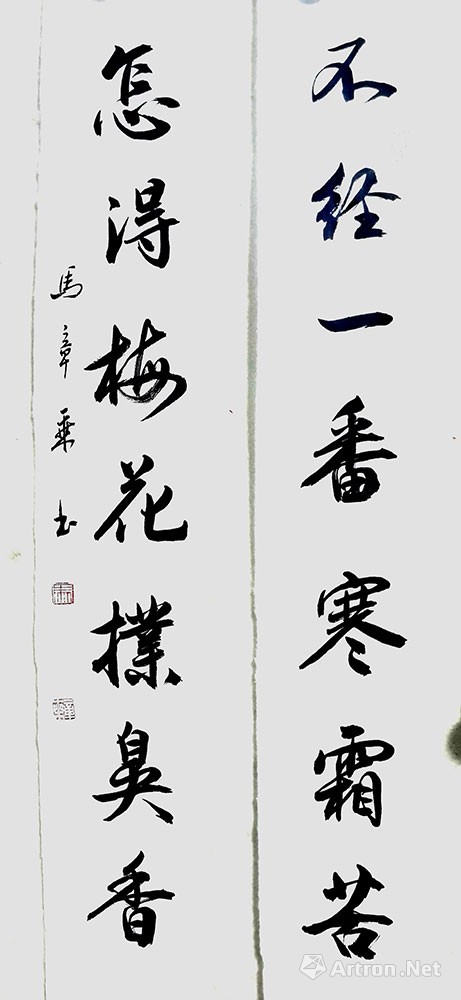 不经一番寒霜苦
怎得梅花撲鼻香
馬章乘书
Artron.Net